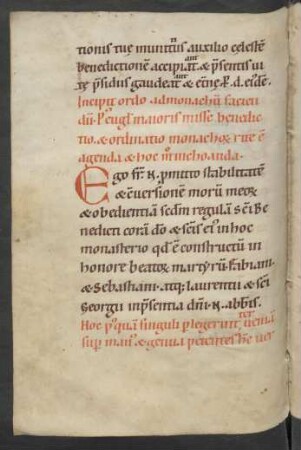 tionis tuę muniti auxilio cęlestē
benedictionē accipiat & p̄sentis ui
tę p̄sidus gaudeat & et̄nę P. d. eūde.
Incipit ordo ad monachū facien
dū. P' euḡl maioris missę benedic
tio & ordinatio monachoꝝ rite ē
agenda & hoc m̄ inchoanda.
Ego fr̄ .N. p̄mitto stabilitatē
& cuersionē morū meoꝝ
& obedientiā scdm regulā Sc̄i Be
nedicti corā dō & sc̄is ei' in hoc
monasterio qd ē constructū in
honore beatoꝝ martyrū Fabiani
& Sebastiani. atq; laurentii & sc̄i
Georgu in p̄sentia dn̄i .N. abb̄is.
Hoc p' quā singuli plegerint ueniā
sup manꝰ & genua petentes